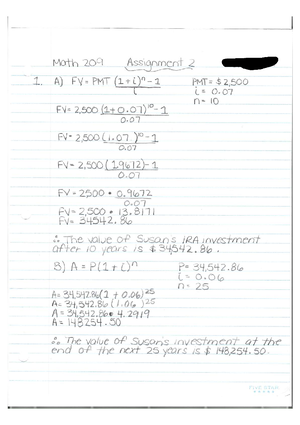 Math 209 Assignment 2
1. A) FV = PMT (1+i)ⁿ - 1 / i PMT = $2,500
i = 0.07
n = 10
FV = 2,500 (1+0.07)¹⁰ - 1 / 0.07
FV = 2,500 (1.07)¹⁰ - 1 / 0.07
FV = 2,500 (1.9672) - 1 / 0.07
FV = 2500 • 0.9672 / 0.07
FV = 2,500 • 13.8171
FV = 34542.86
∴ The value of Susan's IRA investment
after 10 years is $34,542.86.
B) A = P(1+i)ⁿ P = 34,542.86
i = 0.06
n = 25
A = 34,542.86 (1 + 0.06)²⁵
A = 34,542.86 (1.06)²⁵
A = 34,542.86 • 4.2919
A = 148254.50
∴ The value of Susan's investment at the
end of the next 25 years is $148,254.50.